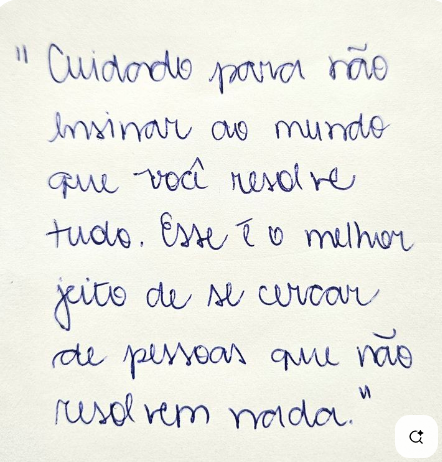 " Cuidado para não
ensinar ao mundo
que você resolve
tudo. Esse é o melhor
jeito de se cercar
de pessoas que não
resolvem nada."